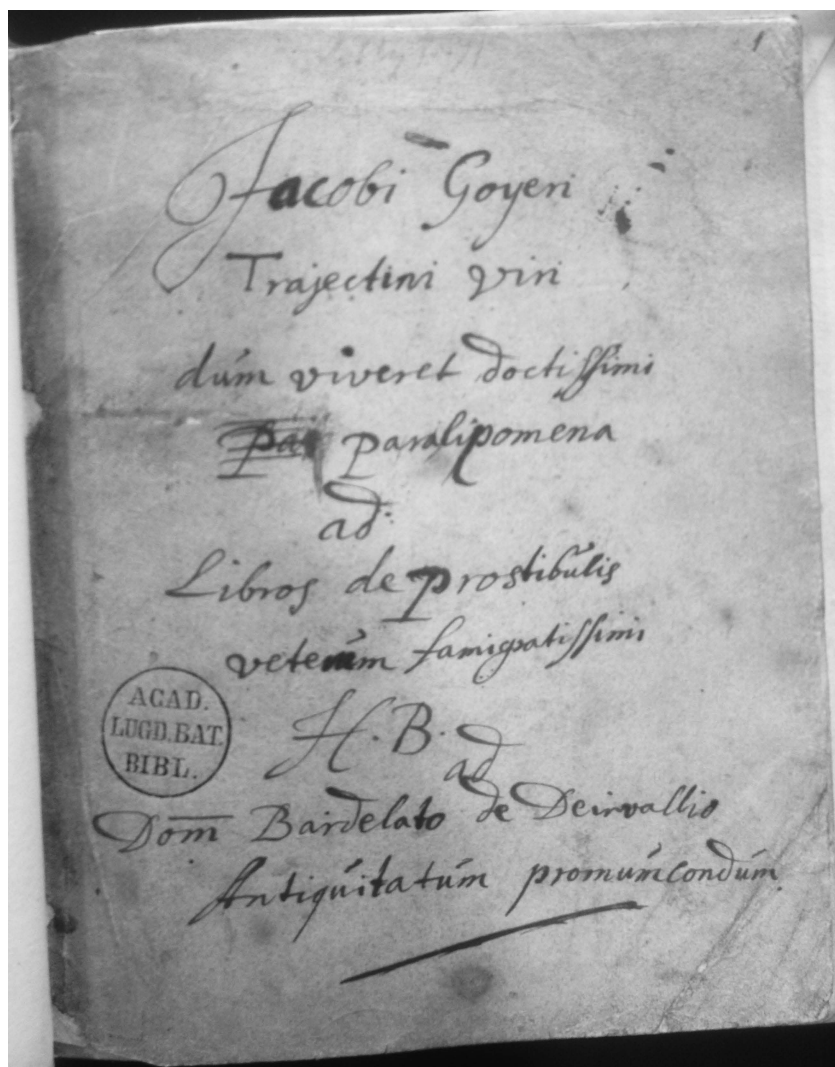 1
Jacobi Goyeri
Trajectini viri
dum viveret doctissimi
par paralipomena
ad
Libros de prostibulis
veterum famigratissimi
H. B.
ad
Dom Bardelato de Deirvallio
Antiquitatum promumcondum
ACAD.
LUGD.BAT.
BIBL.